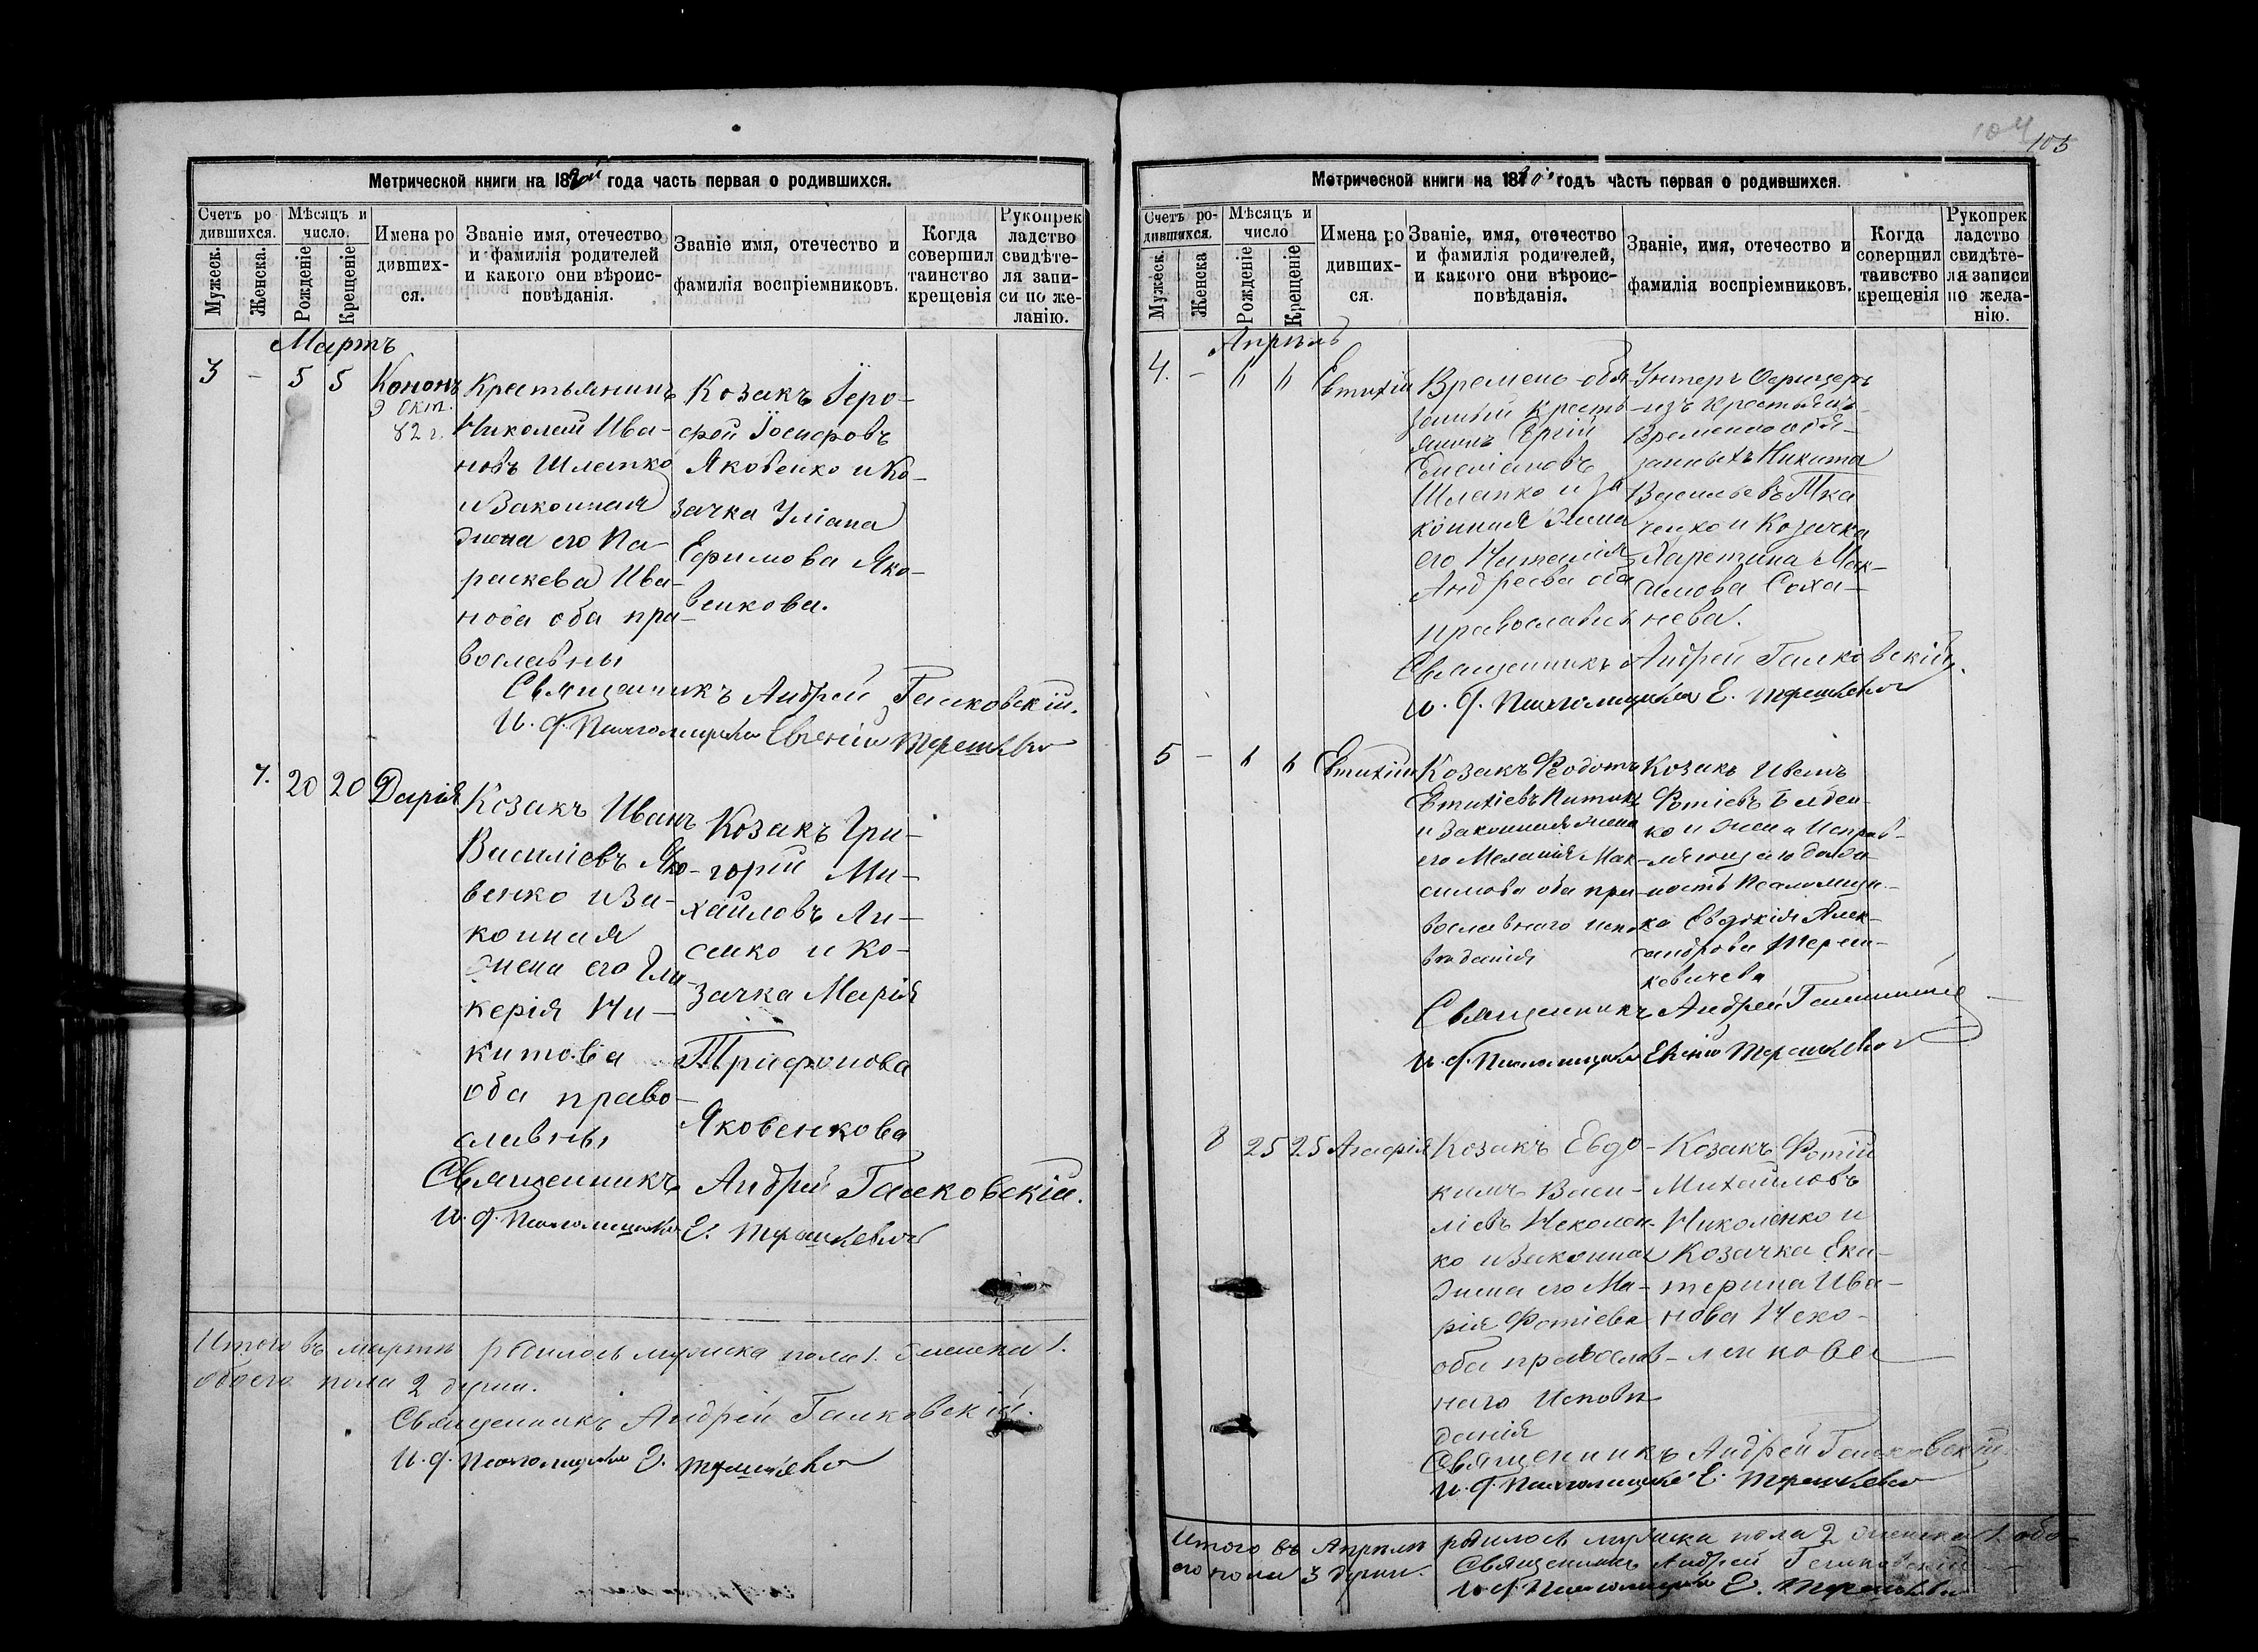 Метрической книги на 18 года часть первая о родившихся.
Счетъ ро
дившихся.
Мужеск.
Женска.
Мѣсяцъ и
число.
Рожденіе
Крещеніе
Имена ро
дивших-
ся.
Званіе имя, отечество
и фамилія родителей
и какого они вѣроис-
повѣданія.
Званіе имя, отечество и
фамилія воспріемниковъ.
Когда
совершил
таинство
крещенія
Рукоприк
ладство
свидѣте-
ля запи-
си по же-
ланію.
Мартъ
3 - 5 5 Кононъ
9 Окт.
82 г.
Крестьянинъ
Николай Ива-
новъ Шлапко
и Законная
жена его Па-
раскева Ива-
нова оба пра-
вославны
Козакъ Іеро-
фей Іосифовъ
Яковенко и Ко-
зачка Уліана
Ефимова Яко-
венкова.
Священникъ Андрей Галковскій.
И. д. Псаломщика Евгеній Терешкевич
7. 20 20 Дарія
Козакъ Иванъ
Василіевъ Яко-
венко и За-
конная
жена его Гли-
керія Ни-
китова
оба право-
славны
Козакъ Гри-
горій Ми-
хайловъ Ли-
сенко и Ко-
зачка Марія
Трифонова
Яковенкова
Священникъ Андрей Галковскій.
И. д. Псаломщика Е. Терешкевич
Итого въ мартѣ родилось мужска пола 1. женска 1.
обоего пола 2 души.
Священникъ Андрей Галковскій.
И. д. Псаломщика Е. Терешкевич
105
Метрической книги на 18 годъ часть первая о родившихся.
Счетъ ро-
дившихся.
Мужеск.
Женска
Мѣсяцъ и
число
Рожденіе
Крещеніе
Имена ро
дивших-
ся.
Званіе, имя, отечество
и фамилія родителей,
и какого они вѣроис-
повѣданія.
Званіе, имя, отечество и
фамилія воспріемниковъ.
Когда
совершил
таинство
крещенія
Рукоприк
ладство
свидѣте-
ля записи
по жела-
нію.
Апрѣль
4. - 6 6 Евтихій
Времено-обя-
занный кресть-
янинъ
Емеліановъ
Шлапко и За
конная жена
его Наталія
Андреева оба
православны
Унтеръ Офицеръ
изъ крестьянъ
Временнообя-
занныхъ Никита
Васильевъ Тка
ченко и Козачка
Харитина Мак-
симова Соха-
нева.
Священникъ Андрей Галковскій.
И. д. Псаломщика Е. Терешкевич
5 - 6 6 Евтихій
Козакъ Феодотъ
Евтихіевъ
и Законная жена
его Меланія Мак-
симова оба пра-
вославнаго испо
вѣданія
Козакъ Иванъ
Фотіевъ
ко и жена Исправ-
ляющаго долж-
ность Псаломщи-
ка Евдокія Алек-
сандрова Тереш-
кевичева
Священникъ Андрей Галковскій
И. д. Псаломщика Евгеній Терешкевич
8 25 25 Агафія
Козакъ Евдо-
кимъ Васи-
ліевъ Николен-
ко и Законная
жена его Ма-
рія Фотіева
оба православ-
наго Исповѣ
данія
Козакъ Фотій
Михайловъ
Николенко и
Козачка Ека-
терина Ива-
нова Нико-
ленкова
Священникъ Андрей Галковскій.
И. д. Псаломщика Е. Терешкевич
Итого въ Апрѣлѣ родилось мужска пола 2 женска 1. обо-
его пола 3 души.
Священникъ Андрей Галковскій
И. д. Псаломщика Е. Терешкевич